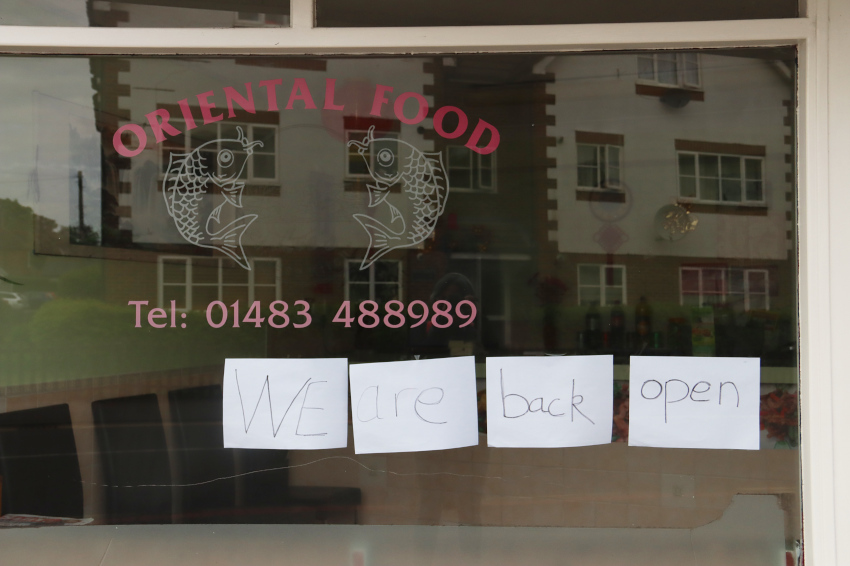 ORIENTAL FOOD
Tel: 01483 488989
WE are back open